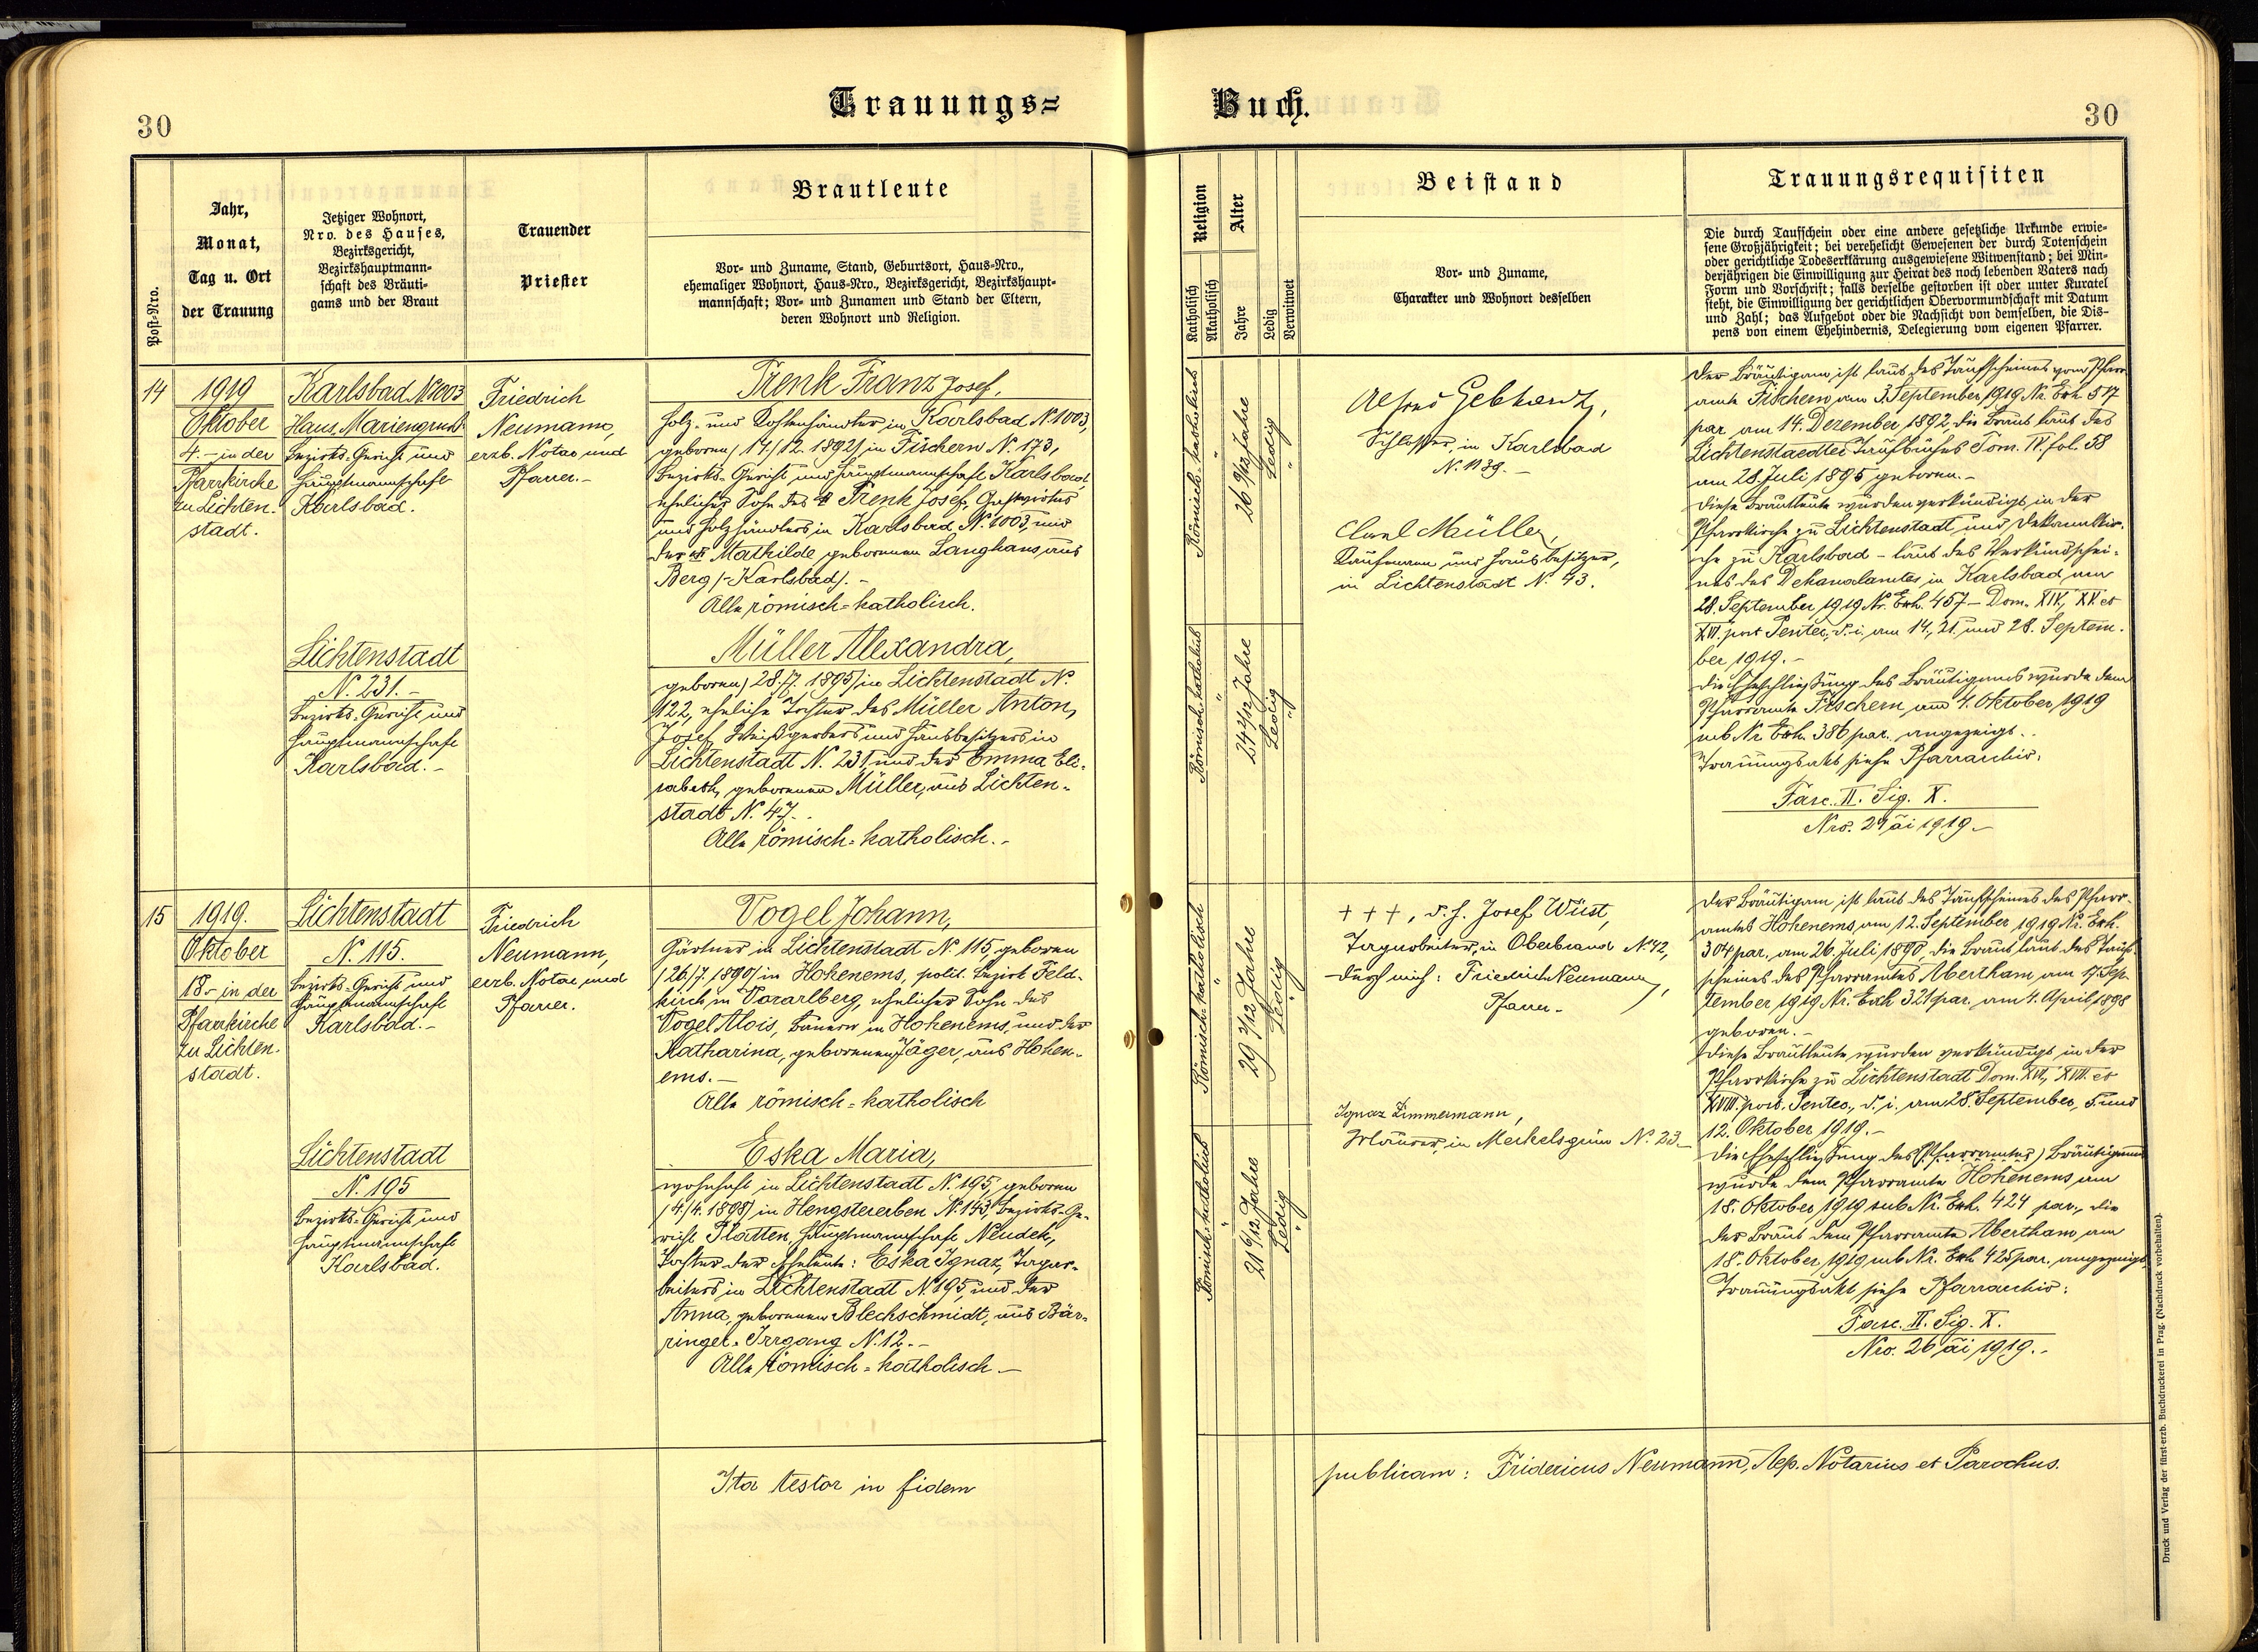 30
Trauungs=
Buch.
30
Post-Nro.
Jahr,
Monat,
Tag u. Ort
der Trauung
Jetziger Wohnort,
Nro. des Hauses,
Bezirksgericht,
Bezirkshauptmann=
schaft des Bräuti=
gams und der Braut
Trauender
Priester
Brautleute
Vor= und Zuname, Stand, Geburtsort, Haus=Nro.,
ehemaliger Wohnort, Haus=Nro., Bezirksgericht, Bezirkshaupt=
mannschaft; Vor= und Zunamen und Stand der Eltern,
deren Wohnort und Religion.
Religion
Katholisch
Akatholisch
Alter
Jahre
Ledig
Verwitwet
Beistand
Vor= und Zuname,
Charakter und Wohnort desselben
Trauungsrequisiten
Die durch Taufschein oder eine andere gesetzliche Urkunde erwie=
sene Großjährigkeit; bei verehelicht Gewesenen der durch Totenschein
oder gerichtliche Todeserklärung ausgewiesene Witwenstand; bei Min=
derjährigen die Einwilligung zur Heirat des noch lebenden Vaters nach
Form und Vorschrift; falls derselbe gestorben ist oder unter Kuratel
steht, die Einwilligung der gerichtlichen Obervormundschaft mit Datum
und Zahl; das Aufgebot oder die Nachsicht von demselben, die Dis=
pens von einem Ehehindernis, Delegierung vom eigenen Pfarrer.
14
1919
Oktober
4.- in der
Pfarrkirche
zu Lichten-
stadt.
Karlsbad N. 1003
Haus, Mariengrund
Bezirks=Gericht und
Hauptmannschaft
Karlsbad.
Friedrich
Neumann,
erzb. Notar und
Pfarrer.-
Trenk Franz Josef,
Holz- und Kohlenhändler in Karlsbad N. 1003,
geboren (14./12. 1892) in Fischern N. 173,
Bezirks=Gericht und Hauptmannschaft Karlsbad,
ehelicher Sohn des Trenk Josef, Gastwirtes
und Holzhändlers in Karlsbad N. 1003, und
der Mathilde, geborenen Langhans aus
Berg (-Karlsbad). -
Alle römisch=katholisch.
Lichtenstadt
N. 231.-
Bezirks=Gericht und
Hauptmannschaft
Karlsbad.-
Müller Alexandra,
geboren (28./7. 1895) in Lichtenstadt N.
122, eheliche Tochter des Müller Anton,
Josef Weißgerbers und Hausbesitzers in
Lichtenstadt N. 231, und der Emma Eli-
sabeth, geborenen Müller, aus Lichten-
stadt N. 47.
Alle römisch=katholisch.-
Römisch-katholisch
"
26 9/12 Jahre
Ledig
"
Römisch-katholisch
"
24 2/12 Jahre
Ledig
"
Alfred Gebhardt,
Schlosser, in Karlsbad
N. 1139.-
Carl Müller,
Kaufmann und Hausbesitzer,
in Lichtenstadt N. 43.
Der Bräutigam ist laut des Taufscheines vom Pfarr-
amte Fischern am 3. September 1919 Nr. Exh. 517
par. am 14. Dezember 1892, die Braut laut des
Lichtenstaedter Taufbuches Tom. IV. fol. 58
am 28. Juli 1895 geboren.-
Diese Brautleute wurden verkündigt in der
Pfarrkirche zu Lichtenstadt und Dekanalkir-
che zu Karlsbad - laut des Verkündschei-
nes des Dekanalamtes in Karlsbad am
28. September 1919 Nr. Exh. 457 - Dom. XIV., XV. et
XVI. post Pentec., d. i. am 14., 21. und 28. Septem-
ber 1919.-
Die Eheschließung des Bräutigams wurde dem
Pfarramte Fischern am 4. Oktober 1919
sub Nr. Exh. 386 par. angezeigt.
Trauungsakt siehe Pfarrarchiv:
Fasc. II. Sig. X.
Nro. 24 ai 1919.-
15
1919.
Oktober
18.- in der
Pfarrkirche
zu Lichten-
stadt.
Lichtenstadt
N. 115.
Bezirks=Gericht und
Hauptmannschaft
Karlsbad.-
Friedrich
Neumann,
erzb. Notar und
Pfarrer.
Vogel Johann,
Gärtner in Lichtenstadt N. 115, geboren
(26./7. 1890) in Hohenems, polit. Bezirk Feld-
kirch in Vorarlberg, ehelicher Sohn des
Vogel Alois, Bauern in Hohenems, und der
Katharina, geborenen Jäger, aus Hohen-
ems.-
Alle römisch=katholisch
Lichtenstadt
N. 195
Bezirks=Gericht und
Hauptmannschaft
Karlsbad.
Eska Maria,
wohnhaft in Lichtenstadt N. 195, geboren
(4./4. 1898) in Hengstererben N. 143, Bezirks=Ge-
richt Platten, Hauptmannschaft Neudek,
Tochter der Eheleute: Eska Ignaz, Tagar-
beiters in Lichtenstadt N. 195, und der
Anna, geborenen Blechschmidt, aus Bär-
ringer-Irrgang N. 12.-
Alle römisch=katholisch.-
Römisch-katholisch
"
29 2/12 Jahre
Ledig
"
Römisch-katholisch
"
21 6/12 Jahre
Ledig
"
+++, d. h. Josef Wüst,
Tagarbeiter, in Oberbrand N. 42,
durch mich: Friedrich Neumann,
Pfarrer.
Ignaz Zimmermann,
Maurer, in Merkelsgrün N. 23.-
Der Bräutigam ist laut des Taufscheines des Pfarr-
amtes Hohenems, am 12. September 1919 Nr. Exh.
304 par. am 26. Juli 1890, die Braut laut des Tauf-
scheines des Pfarramtes Abertham, am 17. Sep-
tember 1919 Nr. Exh. 321 par. am 4. April 1898
geboren.-
Diese Brautleute wurden verkündigt in der
Pfarrkirche zu Lichtenstadt Dom. XVI., XVII. et
XVIII. post. Pentec., d. i. am 28. September, 5. und
12. Oktober 1919.-
Die Eheschließung des (Pfarramtes) Bräutigams
wurde dem Pfarramte Hohenems am
18. Oktober 1919 sub Nr. Exh. 424 par., die
der Braut dem Pfarramte Abertham am
18. Oktober 1919 sub Nr. Exh. 425 par. angezeigt.
Trauungsakt siehe Pfarrarchiv:
Fasc. II. Sig. X.
Nro. 26 ai 1919.-
Ita testor in fidem
publicam: Fridericus Neumann, Aep. Notarius et Parochus.
Druck und Verlag der fürst-erzb. Buchdruckerei in Prag. (Nachdruck vorbehalten).